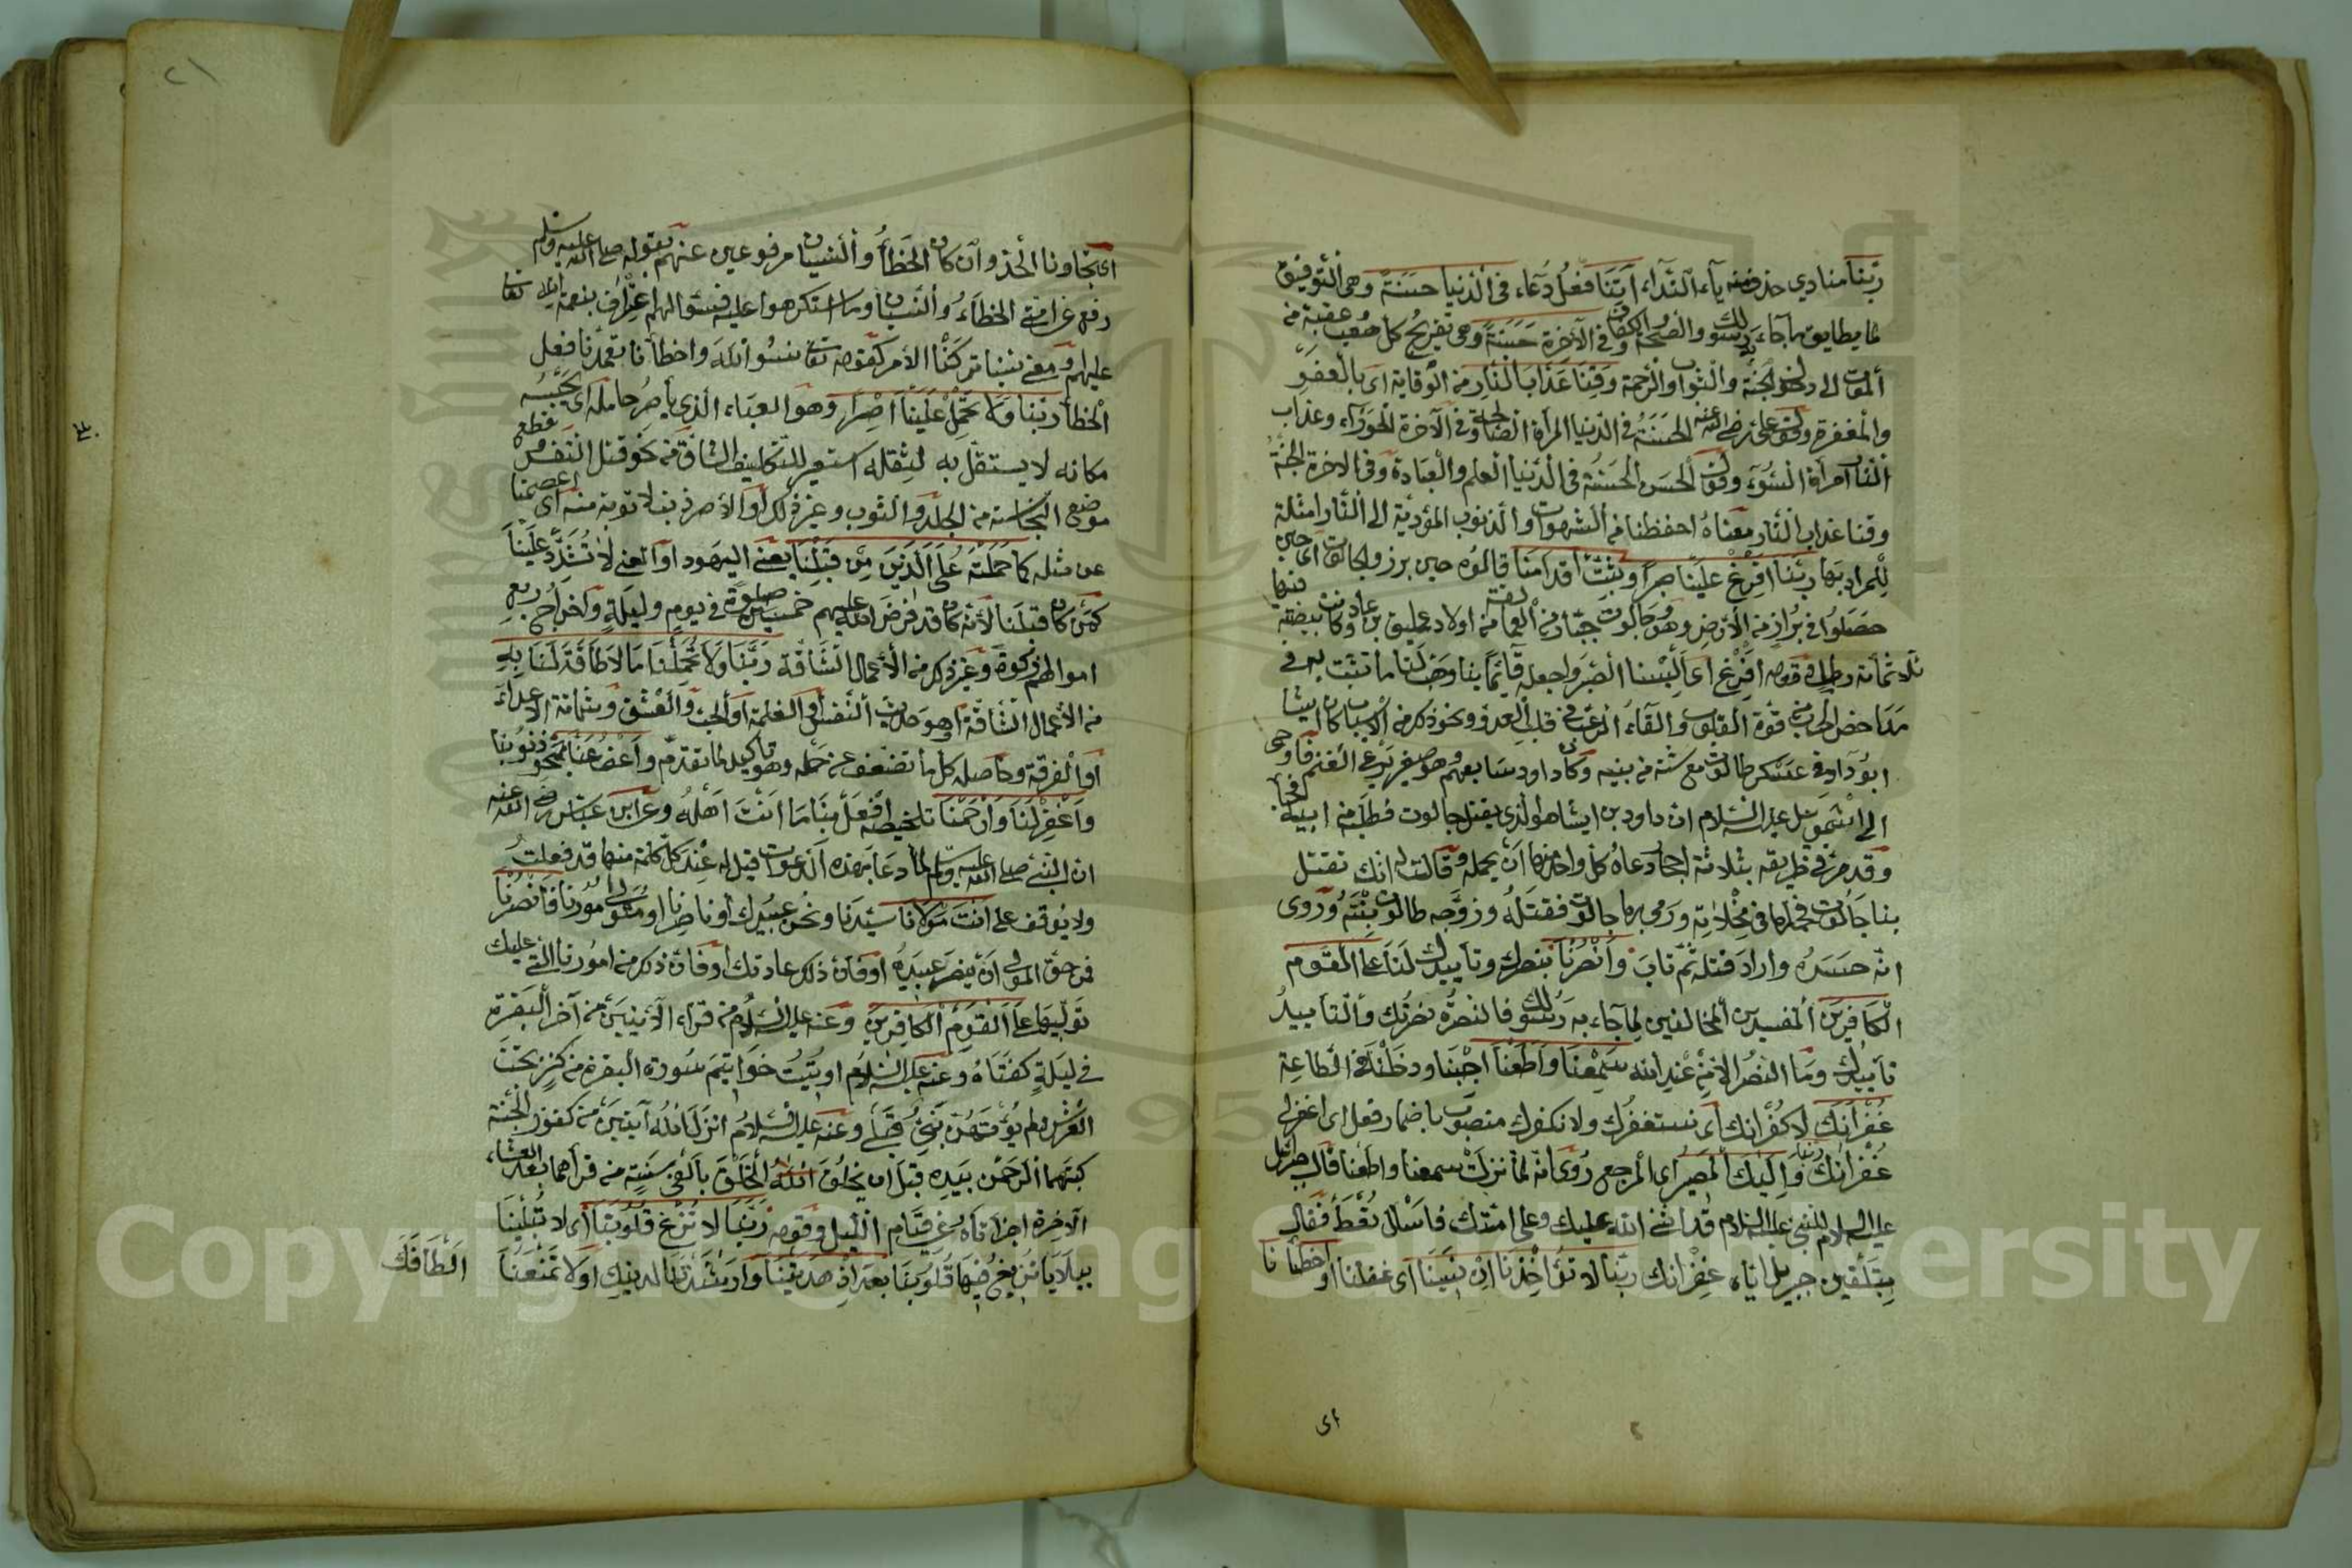 ربنا منادي حذف منه ياء النداء آتنا فعل دعاء في الدنيا حسنة وهي التوفيق
لما يطابق ما جاء به رسولك والصحة والكفاف وفي الآخرة حسنة وهي تفريج كل صعب عقبة من
الموت الى دخول الجنة والثواب والرحمة وقنا عذاب النار من الوقاية اى بالعفو
والمغفرة وقول على رضي الله عنه الحسنة في الدنيا المرأة الصالحة وفي الآخرة الحوراء وعذاب
النار امرأة السوء وقول الحسن الحسنة في الدنيا العلم والعبادة وفى الاخرة الجنة
وقنا عذاب النار معناه احفظنا من الشهوات والذنوب المؤدية الى النار امثلة
للمراد بها ربنا افرغ علينا صبرا وثبت أقدامنا قالوه حين برزوا لجالوت اى حين
حصلوا في براز من الأرض وهو جالوت جبار من العمالقة من اولاد عمليق بن عاد وكانت بيضته فيها
ثلاثمائة رطل وقوله افرغ اى البسنا الصبر واجعله قائما بنا وهب لنا ما نثبت به في
مداحض الحرب من قوة القلوب والقاء الرعب في قلب العدو ونحو ذلك من الأسباب كان ايشا
ابو داود في عسكر طالوت مع ستة من بنيه وكان داود سابعهم وهو صغير يرعى الغنم فاوحى
الى اشمويل عليه السلام ان داود بن ايشا هو الذي يقتل جالوت فطلبه من ابيه فجاء
وقد مر في طريقه بثلاثة احجار دعاه كل واحد منها أن يحمله وقالت له انك تقتل
بنا جالوت فحملها في مخلاته ورمى بها جالوت فقتله وزوجه طالوت بنته وروى
انه حسده واراد قتله ثم تاب وانصرنا بنصرك وتأييدك لنا على القوم
الكافرين المفسدين المخالفين لما جاء به رسولك فالنصرة نصرتك والتأييد
تأييدك وما النصر الا من عند الله سمعنا واطعنا اجبنا ودخلنا في الطاعة
غفرانك لا كفرانك اى نستغفرك ولا نكفرك منصوب باضمار فعل اى اغفر لى
غفرانك ربنا واليك المصير اى المرجع روى انه لما نزلت سمعنا واطعنا قال جبرائيل
عليه السلام للنبي عليه السلام قد اثنى الله عليك وعلى امتك فاسأل تعط فقال
بتلقين جبريل اياه غفرانك ربنا لا تؤاخذنا ان نسينا اى غفلنا او اخطأنا
اى
اى تجاوزنا الحد وان كان الخطأ والنسيان مرفوعين عنهم بقوله صلى الله عليه وسلم
رفع عن امتى الخطاء والنسيان وما استكرهوا عليه فسؤالهم اعتراف بنعمة الله تعالى
عليهم ومعنى نسينا تركنا الأمر كقوله تعالى نسوا الله واخطأنا تعمدنا فعل
الخطأ ربنا ولا تحمل علينا اصرا وهو العباء الذي يأصر حامله اى يحبسه
مكانه لا يستقل به لثقله استعير للتكليف الشاق من نحو قتل النفس وقطع
موضع النجاسة من الجلد والثوب وغير ذلك او الاصر ذنب لا توبة منه اى اعصمنا
عن مثله كما حملته على الذين من قبلنا يعنى اليهود او المعنى لا تشدد علينا
كمن كان قبلنا لأنه كان قد فرض الله عليهم خمسين صلوة في يوم وليلة واخراج ربع
اموالهم زكوة وغير ذلك من الأعمال الشاقة ربنا ولا تحملنا ما لا طاقة لنا به
من الأعمال الشاقة او هو حديث النفس او الغلمة او الحب والعشق وشماتة الاعداء
او الفرقة وحاصله كل ما تضعف عن حمله وهو تأكيد لما تقدم واعف عنا بمحو ذنوبنا
واغفر لنا وارحمنا تلخيصه افعل بنا ما انت اهله وعن ابن عباس رضي الله عنه
ان النبي صلى الله عليه وسلم لما دعا بهذه الدعوات قيل له عند كل كلمة منها قد فعلت
ولا يوقف على انت مولانا سيدنا ونحن عبيدك أو ناصرنا او متولى امورنا فانصرنا
فمن حق المولى أن ينصر عبيده او فان ذلك عادتك او فان ذلك من امورنا التى عليك
توليها على القوم الكافرين وعنه عليه السلام من قرأ الآيتين من آخر البقرة
في ليلة كفتاه وعنه عليه السلام اوتيت خواتيم سورة البقرة من كنز تحت
العرش لم يؤتهن نبي قبلي وعنه عليه السلام انزل الله آيتين من كنوز الجنة
كتبهما الرحمن بيده قبل ان يخلق الله الخلق بالفي سنة من قرأهما بعد العشاء
الآخرة اجزأتاه عن قيام الليل وقوله ربنا لا تزغ قلوبنا اى لا تبلينا
ببلايا تزيغ فيها قلوبنا بعد اذ هديتنا وارشدتنا لدينك او لا تمنعنا
الطافك
Copyright © King Saud University